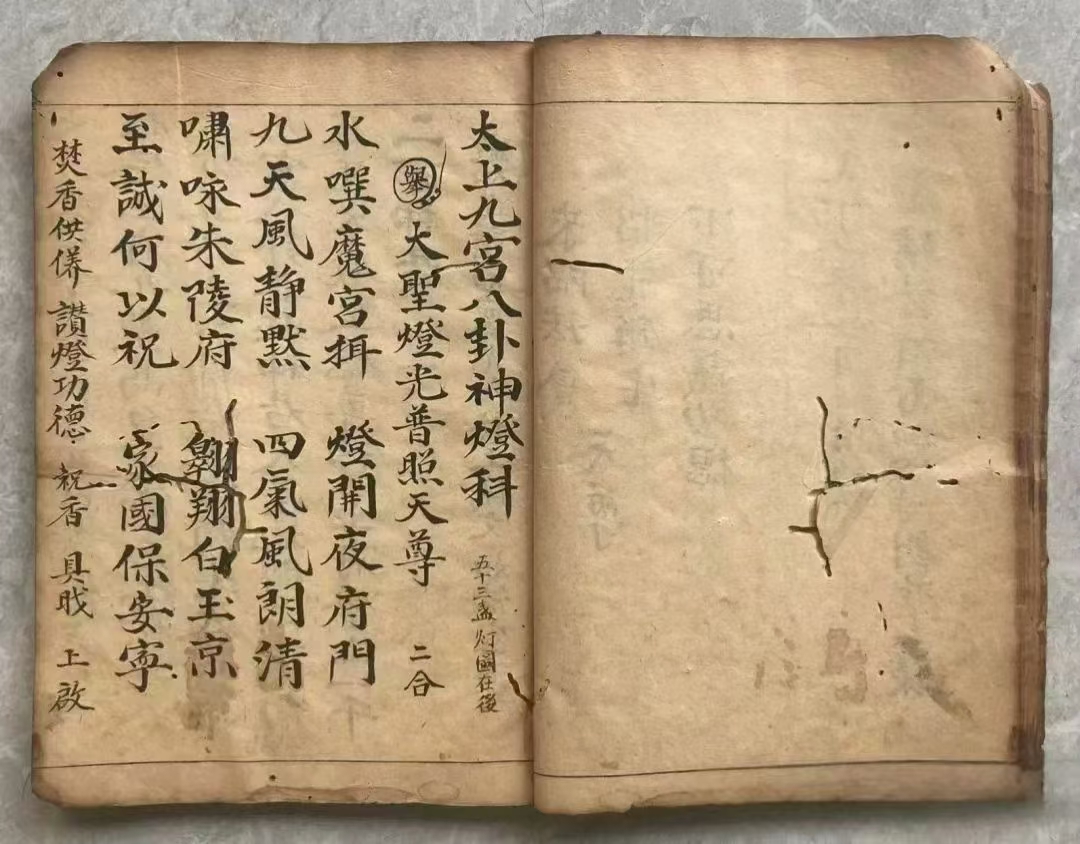 太上九宮八卦神燈科
五十三盞灯圖在後
舉 大聖燈光普照天尊 二合
水噀魔宮拑 燈開夜府門
九天風靜默 四氣風朗清
嘯咏朱陵府 翱翔白玉京
至誠何以祝 家國保安寧
焚香供養 讃燈功德 祝香 具戝 上啟